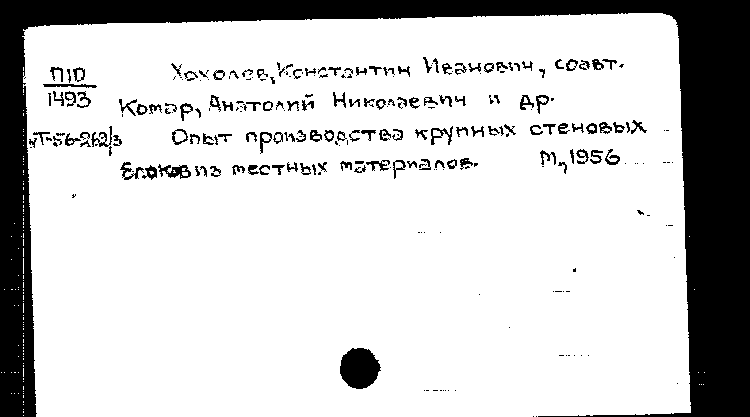 П10 Хохолев, Константин Иванович, соавт.
1493 Комар, Анатолий Николаевич и др.
Т-56-262/3 Опыт производства крупных стеновых
блоков из местных материалов. М., 1956